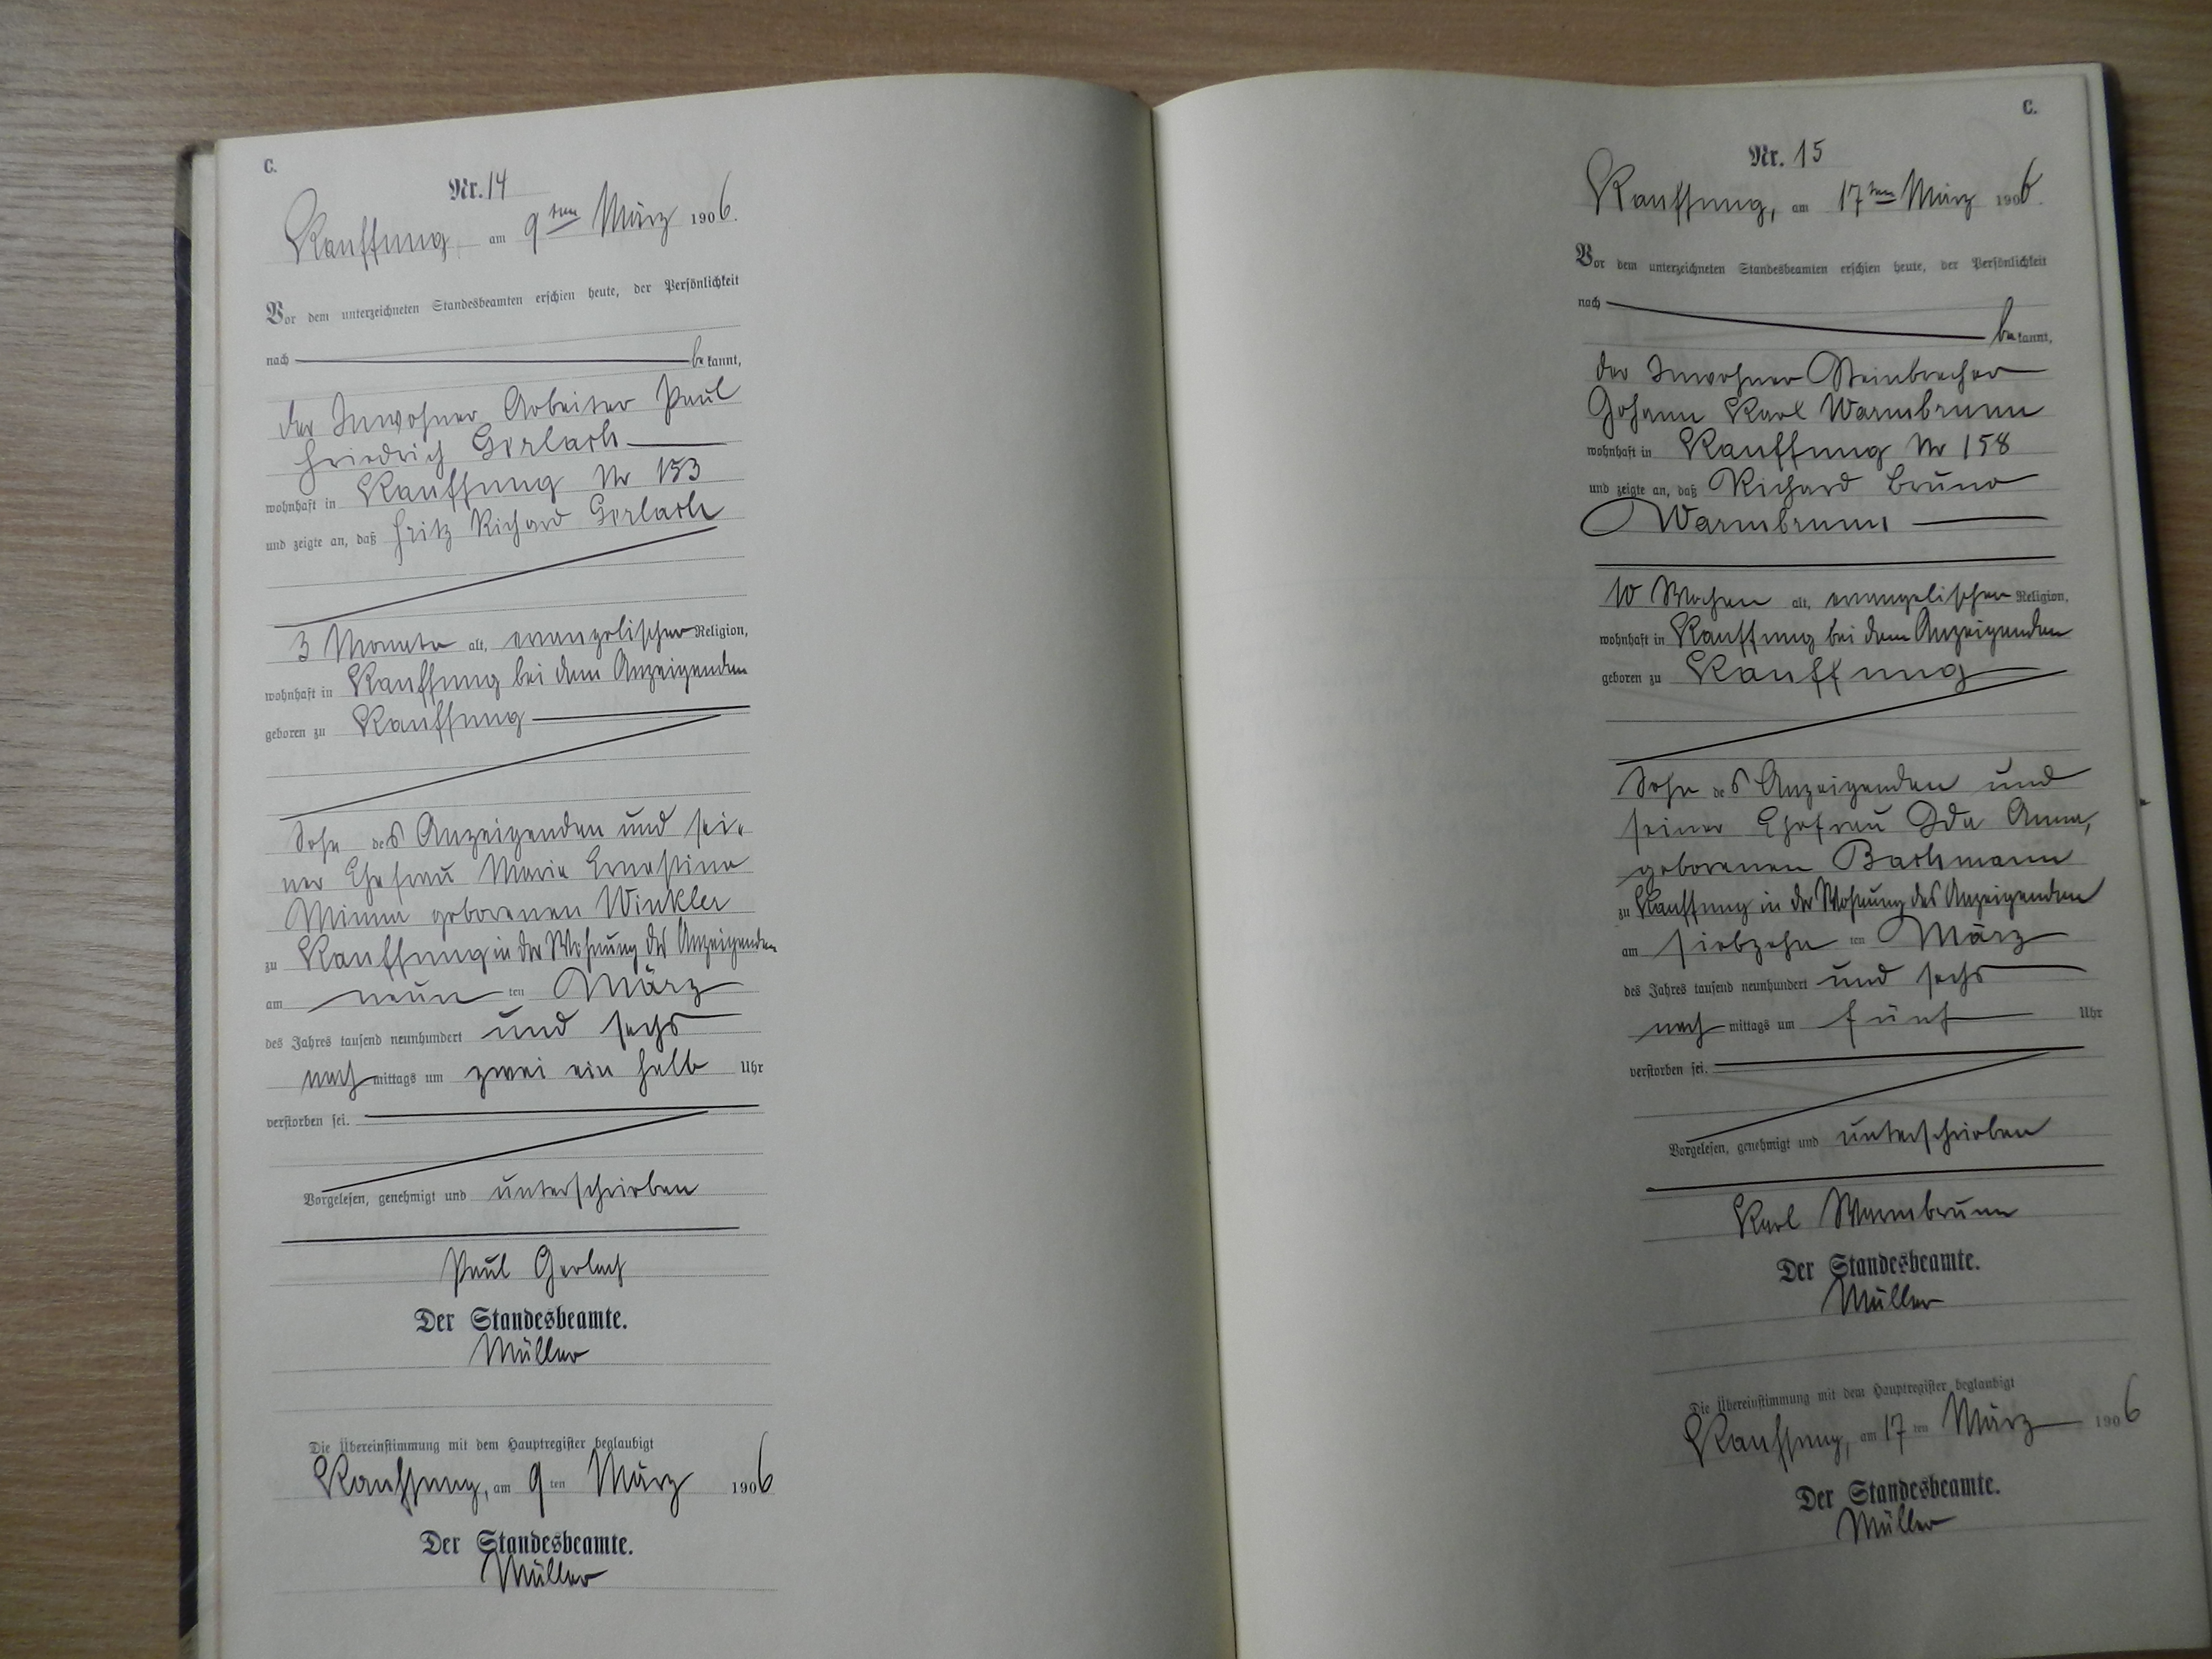 C.
Nr. 14
Kauffung, am 9ten März 1906.
Vor dem unterzeichneten Standesbeamten erschien heute, der Persönlichkeit
nach be kannt,
der Inwohner Arbeiter Paul
Friedrich Gerlach
wohnhaft in Kauffung Nr 153
und zeigte an, daß Fritz Richard Gerlach
3 Monate alt, evangelischer Religion,
wohnhaft in Kauffung bei dem Anzeigenden
geboren zu Kauffung
Sohn des Anzeigenden und sei-
ner Ehefrau Marie Ernestine
Minna geborenen Winkler
zu Kauffung in der Wohnung des Anzeigenden
am neun ten März
des Jahres tausend neunhundert und sechs
nach mittags um zwei ein halb Uhr
verstorben sei.
Vorgelesen, genehmigt und unterschrieben
Paul Gerlach
Der Standesbeamte.
Müller
Die Übereinstimmung mit dem Hauptregister beglaubigt
Kauffung, am 9 ten März 1906
Der Standesbeamte.
Müller
C.
Nr. 15
Kauffung, am 17ten März 1906.
Vor dem unterzeichneten Standesbeamten erschien heute, der Persönlichkeit
nach be kannt,
der Inwohner Steinbrecher
Johann Karl Warmbrunn
wohnhaft in Kauffung Nr 158
und zeigte an, daß Richard Bruno
Warmbrunn
10 Wochen alt, evangelischer Religion,
wohnhaft in Kauffung bei dem Anzeigenden
geboren zu Kauffung
Sohn des Anzeigenden und
seiner Ehefrau Ida Anna,
geborenen Bachmann
zu Kauffung in der Wohnung des Anzeigenden
am siebzehn ten März
des Jahres tausend neunhundert und sechs
nach mittags um fünf Uhr
verstorben sei.
Vorgelesen, genehmigt und unterschrieben
Karl Warmbrunn
Der Standesbeamte.
Müller
Die Übereinstimmung mit dem Hauptregister beglaubigt
Kauffung, am 17 ten März 1906
Der Standesbeamte.
Müller